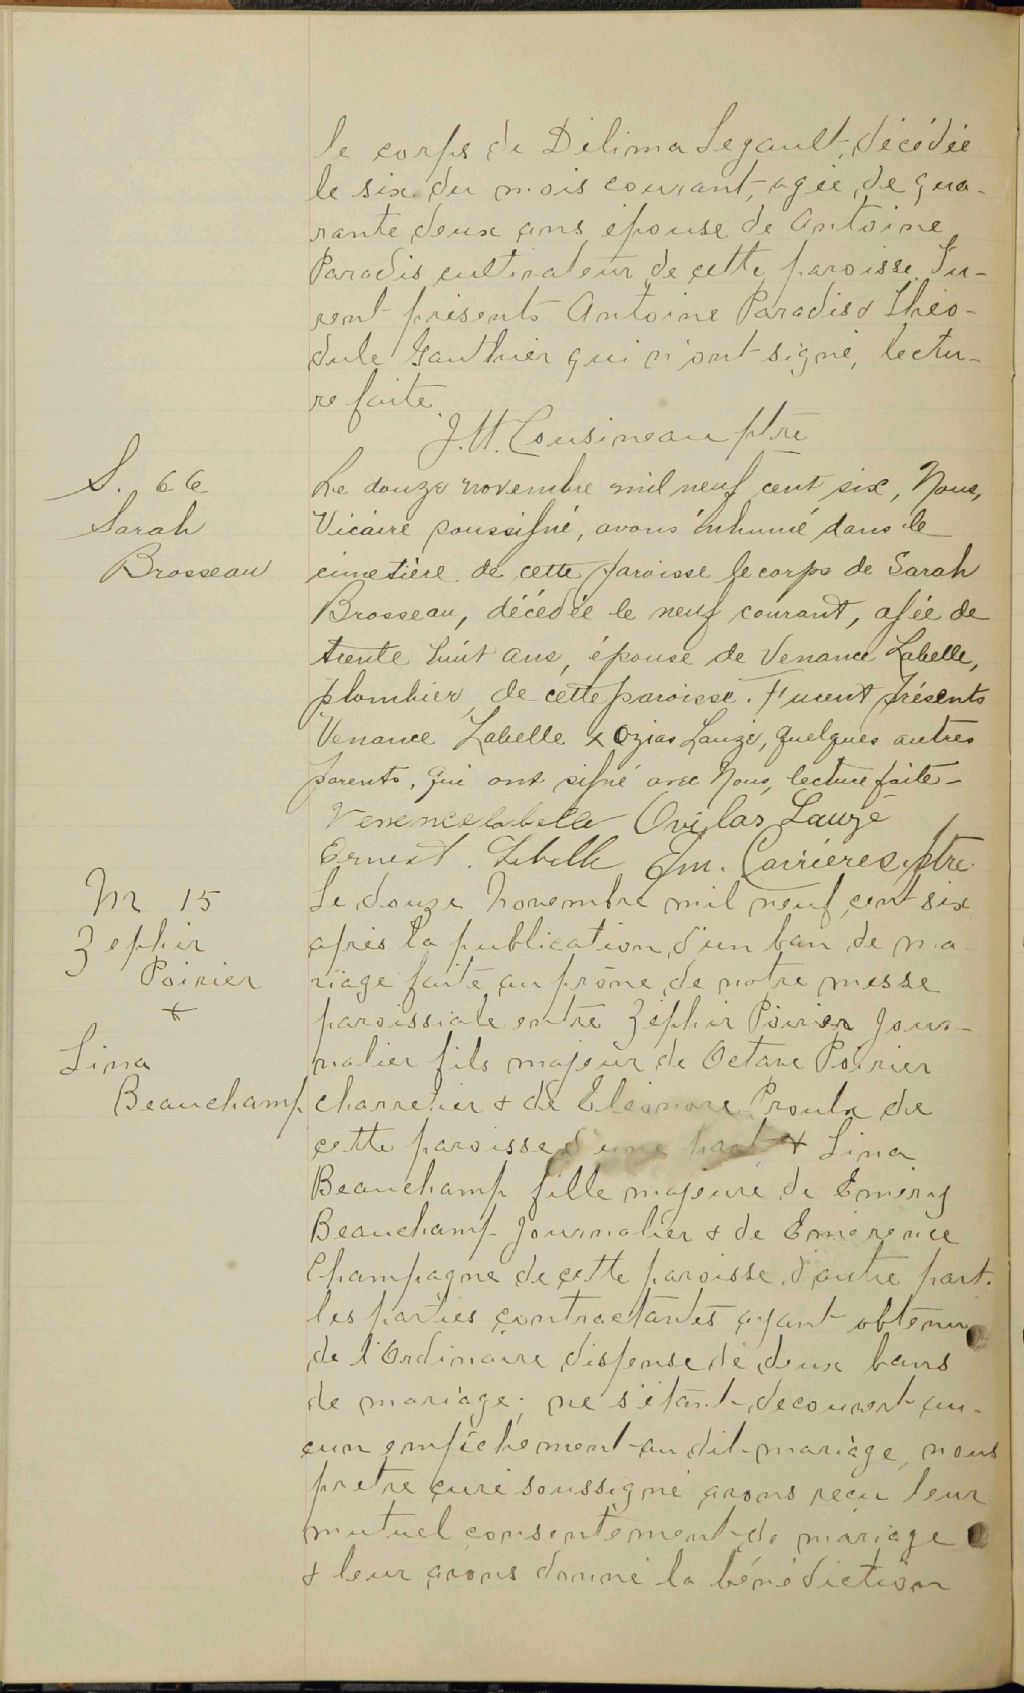 le corps de Délima Legault, décédée
le six du mois courant, agée de qua-
rante deux ans épouse de Antoine
Paradis cultivateur de cette paroisse. Fu-
rent présents Antoine Paradis & Théo-
dule Gauthier qui n'ont signé, lectu-
re faite.
J. H. Cousineau ptre
S. 66
Sarah
Brosseau
Le douze novembre mil neuf cent six, Nous,
Vicaire soussigné, avons inhumé dans le
cimetière de cette paroisse le corps de Sarah
Brosseau, décédée le neuf courant, agée de
trente huit ans, épouse de Venance Labelle,
plombier, de cette paroisse. Furent présents
Venance Labelle & Ozias Lauzé, quelques autres
parents, qui ont signé avec Nous, lecture faite -
Venence labelle Ovilas Lauzé
Ernest Labelle Em. Carrieres, ptre.
M 15
Zephir
Poirier
+
Lina
Beauchamp
Le douze Novembre mil neuf cent six
après la publication d'un ban de ma-
riage faite au prône de notre messe
paroissiale entre Zéphir Poirier jour-
nalier fils majeur de Octave Poirier
charretier & de Eléonore Proulx de
cette paroisse d'une part & Lina
Beauchamp fille majeure de Emery
Beauchamp journalier & de Emérence
Champagne de cette paroisse d'autre part.
les parties contractantes ayant obtenu
de l'Ordinaire dispense de deux bans
de mariage; ne s'étant decouvert au-
cun empêchement au dit mariage, nous
prêtre curé soussigné avons reçu leur
mutuel consentement de mariage
& leur avons donné la bénédiction